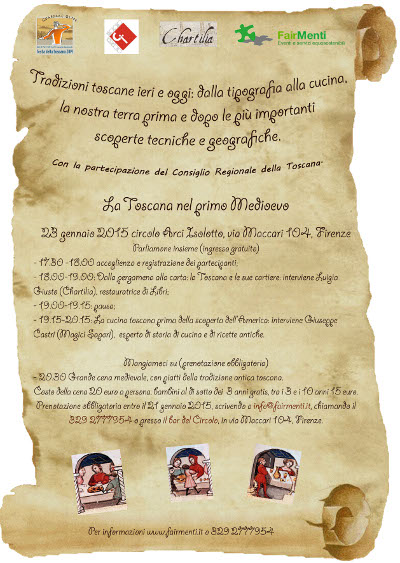 Chartilia
FairMenti
Eventi e servizi equosostenibili
Tradizioni toscane ieri e oggi: dalla tipografia alla cucina,
la nostra terra prima e dopo le più importanti
scoperte tecniche e geografiche.
Con la partecipazione del Consiglio Regionale della Toscana
La Toscana nel primo Medioevo
23 gennaio 2015 circolo Arci Isolotto, via Maccari 104, Firenze
Parliamone insieme (ingresso gratuito)
- 17.30 -18.00 accoglienza e registrazione dei partecipanti;
- 18.00-19.00: Dalla pergamena alla carta: la Toscana e le sue cartiere: interviene Luigia
Giusto (Chartilia), restauratrice di Libri;
- 19.00-19.15: pausa;
- 19.15-2015: La cucina toscana prima della scoperta dell'America: interviene Giuseppe
Castri (Magici Sapori), esperto di storia di cucina e di ricette antiche.
Mangiamoci su (prenotazione obbligatoria)
- 20.30 Grande cena medievale, con piatti della tradizione antica toscana.
Costo della cena 20 euro a persona, bambini al di sotto dei 3 anni gratis, tra i 3 e i 10 anni 15 euro.
Prenotazione obbligatoria entro il 21 gennaio 2015, scrivendo a info@fairmenti.it, chiamando il
329 2777954 o presso il bar del Circolo, in via Maccari 104, Firenze.
Per informazioni www.fairmenti.it o 329 2777954